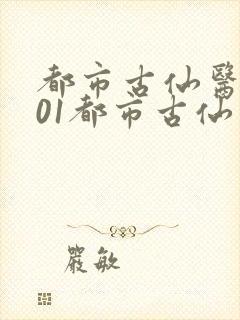 都市古仙醫
01都市古仙
嚴敏